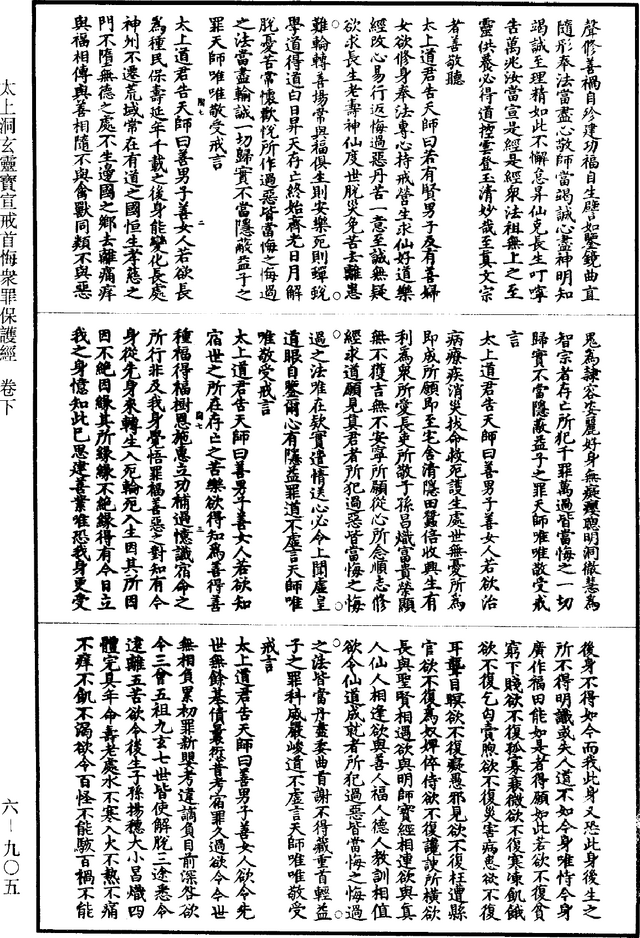 聲修善禍自殄建功福自生譬如鑒鏡曲直
隨形奉法當盡心敬師當竭誠心盡神明知
竭誠至理精如此不懈怠昇仙克長生叮嚀
告萬兆汝當宣是經是經衆法祖無上之至
靈供養必得道控雲登玉清妙哉至真文宗
者善敬聽
太上道君告天師曰若有賢男子及有善婦
女欲修身奉法專心持戒營生求仙好道樂
經改心易行返悔過惡丹苦一意至誠無疑
欲求長生老壽神仙度世脫災免苦去離患
難輪轉善場常與福俱生則安樂死則蟬蛻
學道得道白日昇天存亡終始齊光日月解
脫憂苦常懷歡悅所作過惡皆當悔之悔過
之法當盡輸誠一切歸實不當隱蔽益子之
罪天師唯唯敬受戒言
陶七
二
太上道君告天師曰善男子善女人若欲長
爲種民保壽延年千載之後身能變化長處
神州不遷荒域常在有道之國恒生孝慈之
門不墮無德之處不生邊國之鄉去離痛痒
與福相傳與善相隨不與禽獸同類不與惡
鬼爲隸容安麗好身無癡癭聰明洞徹慧爲
智宗者存亡所犯千罪萬過皆當悔之一切
歸實不當隱蔽益子之罪天師唯唯敬受戒
言
太上道君告天師曰善男子善女人若欲治
病療疾消災拔命救死護生處世無憂所爲
即成所願即至宅舍清隱田蠶倍收興生有
利爲衆所愛長吏所敬子孫昌熾富貴榮顯
無不復吉無不安寧所願從心所念順志修
經求道願見真君者所犯過惡皆當悔之悔
過之法唯在欵實遣情送心必令上聞虛皇
道眼自鑒爾心有隱益罪道不虛言天師唯
唯敬受戒言
太上道君告天師曰善男子善女人若欲知
宿世之所在存亡之苦樂欲得知爲善得善
陶七
三
種福得福樹恩施惠立功補過憶識宿命之
所行非及我身覺悟罪福善惡之對知有今
身從先身來轉生入死輪死入生因其所因
因不絶因緣其所緣緣不絶緣得有今日立
我之身憶知此已思建善業唯恐我身更受
後身不得如今而我此身又恐此身後生之
所不得明識或失人道不如今身唯恃今身
廣作福田能如是者得願如此若欲不復貧
窮下賤欲不復孤寡衰微欲不復寒凍飢餓
欲不復乞匃霑胞欲不復災害病患欲不復
耳聾目瞑欲不復癡愚邪見欲不復枉遭縣
官欲不復爲奴婢倅侍欲不復讒諛所橫欲
長與聖賢相遇欲與明師寶經相連欲與真
人仙人相逢欲與善人福人德人教訓相值
欲令仙道成就者所犯過惡皆當悔之悔過
之法皆當丹盡委曲首謝不得藏重首輕益
子之罪科威嚴峻道不虛言天師唯唯敬受
戒言
太上道君告天師曰善男子善女人欲令先
世無餘基債曩愆昔考宿罪久過欲令今世
無相負累初罪新嬰考違讁負目前深咎欲
令三會五祖九玄七世皆使解脫三途悉令
遠離五苦欲令後生子孫揚穗大小昌熾四
體完具年命壽老處水不寒入火不熱不痛
不痒不飢不渴欲令百怪不能駭百禍不能
太上洞玄靈寶宣戒首悔衆罪保護經 卷下
六－九〇五